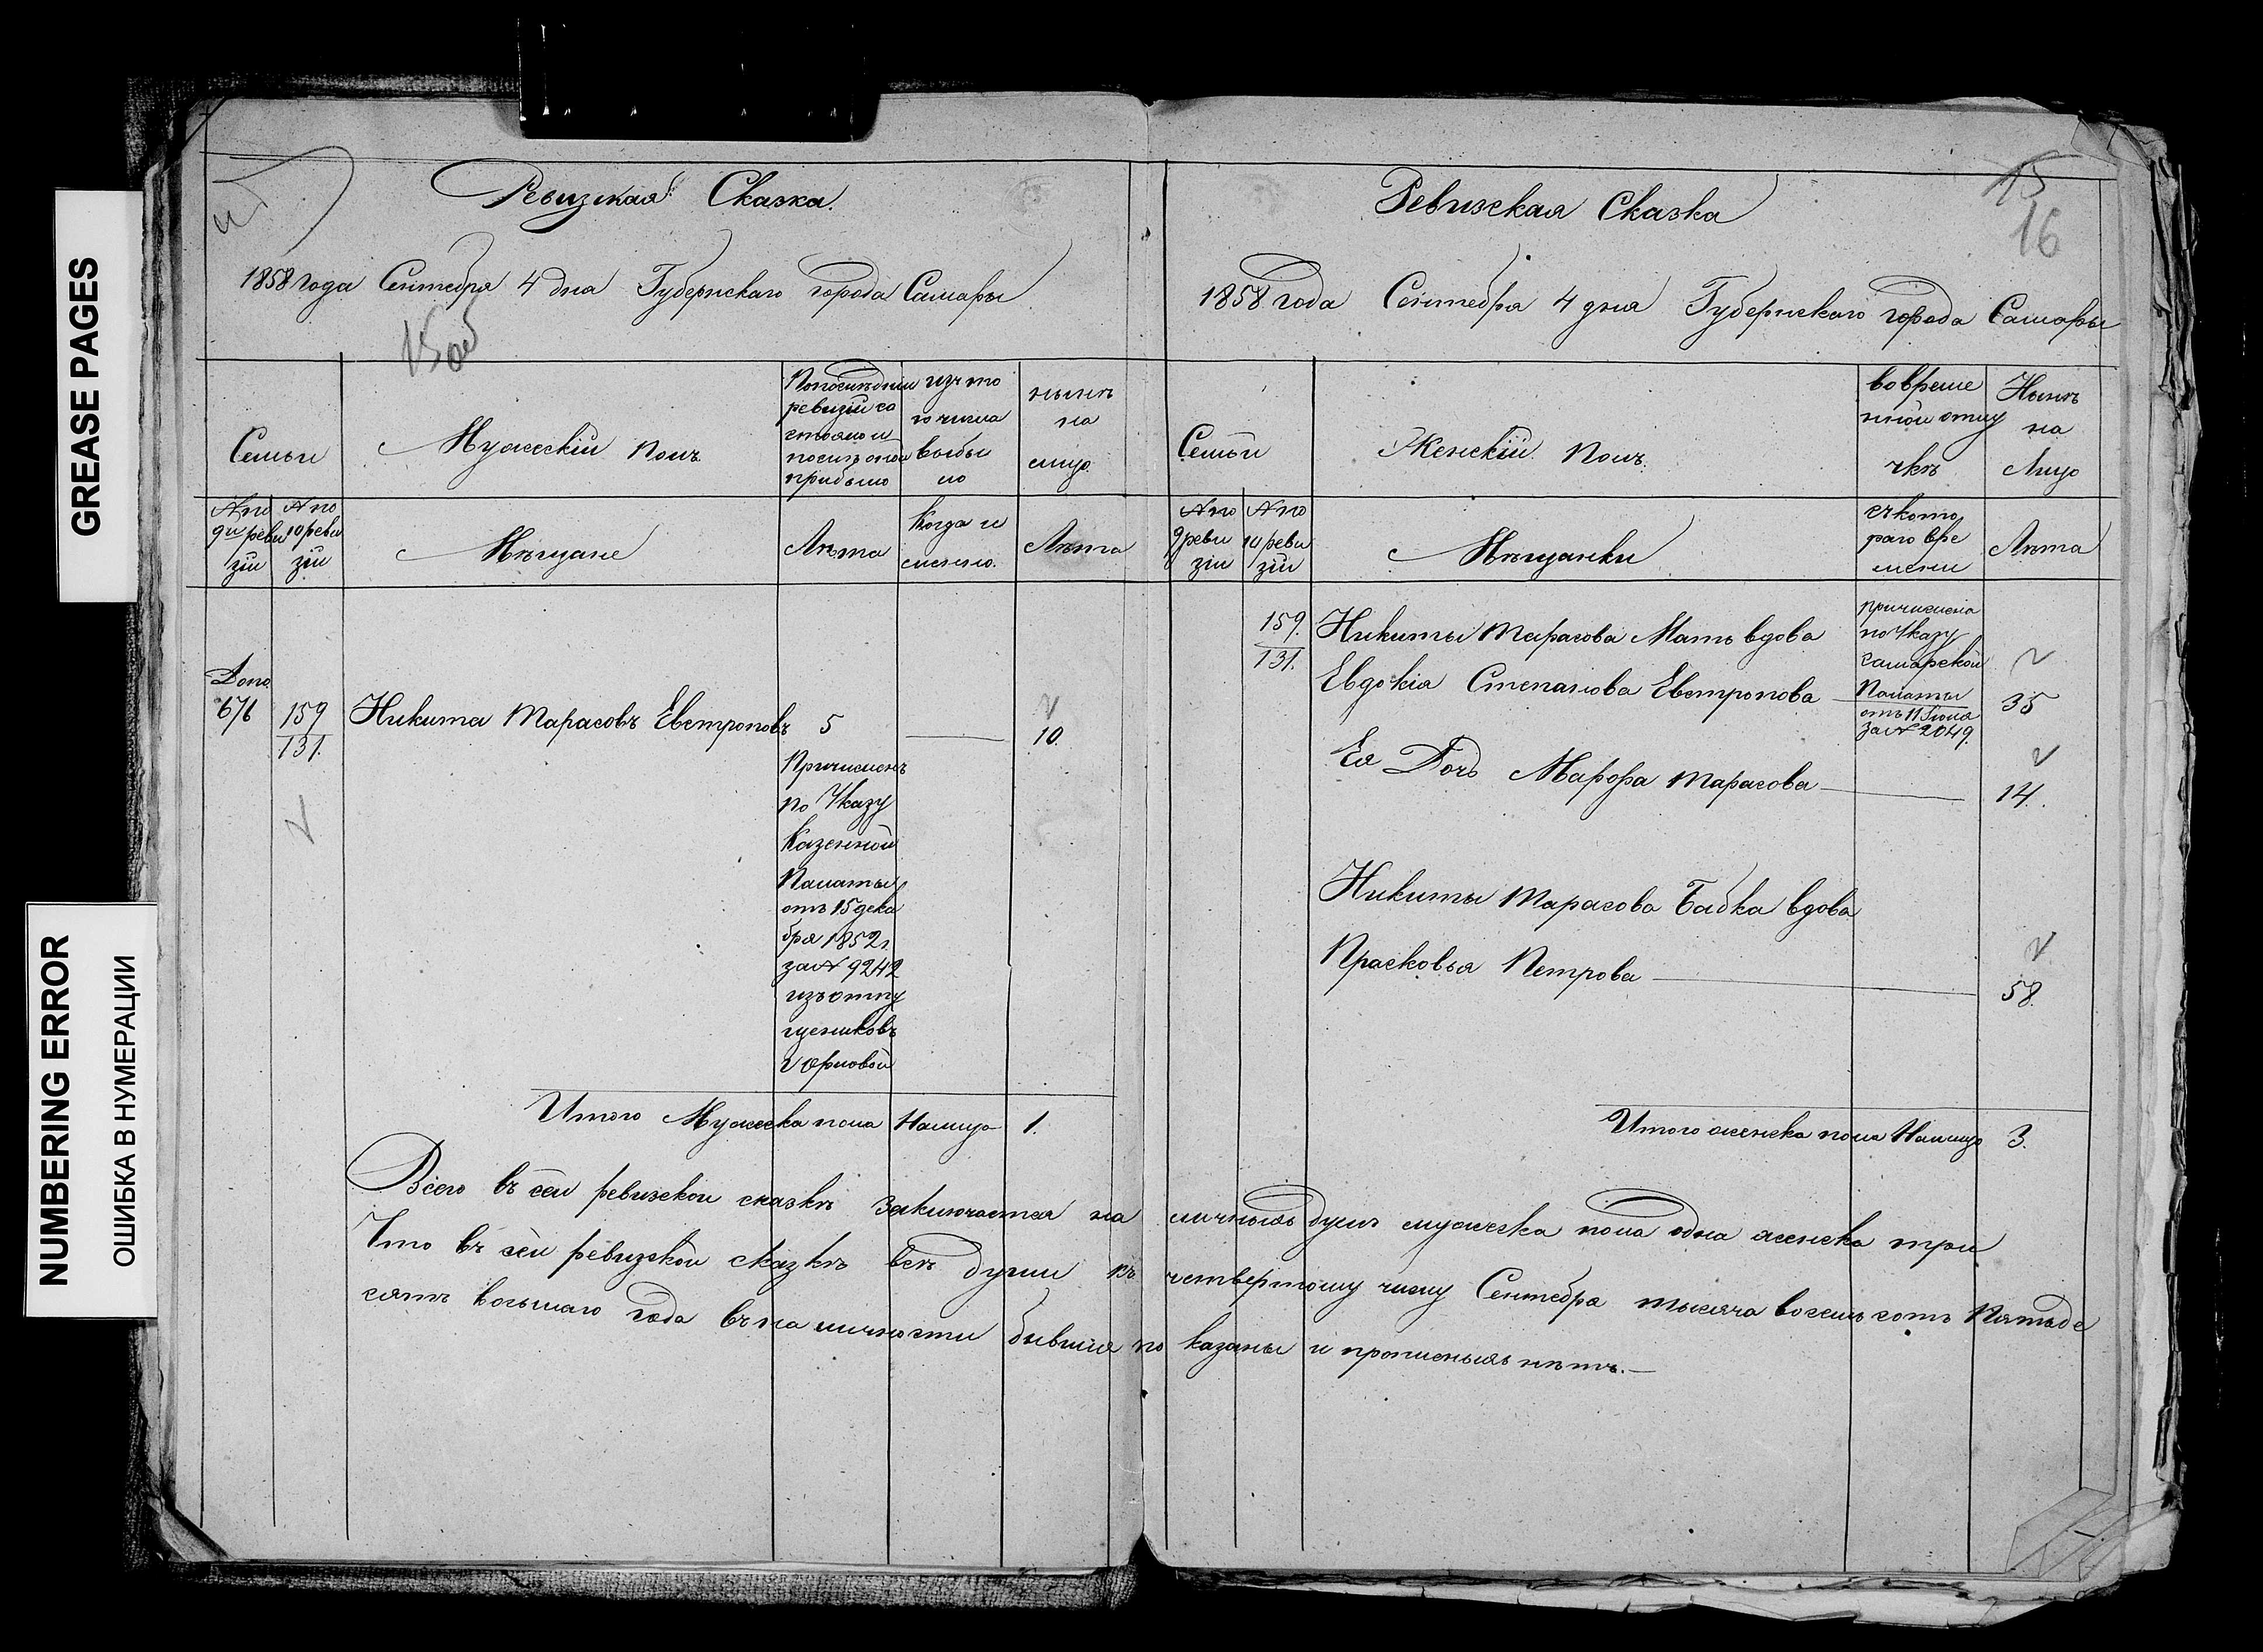 GREASE PAGES
NUMBERING ERROR
ОШИБКА В НУМЕРАЦИИ
Ревизская Сказка.
1858 года Сентября 4 дна Губернскаго города Самары
15об
Семьи
Мужескій полъ
По последнии
ревизіи со
стояло и
после оной
прибыло
изъ то
го числа
выбы
ло
нынѣ
на
лицо
№ по
9й реви
зіи
№ по
10 реви
зіи
Мѣщане
Лѣта
Когда и
именно.
Лѣта
Допо.
676
159
131.
Никита Тарасовъ Евтроповъ
5
10.
Причисленъ
по Указу
Казенной
Палаты
отъ 15 дека
бря 1852 г.
за № 9242
изъ отпу
щениковъ
г Орловой
Итого Мужеска пола Налицо 1.
Ревизская Сказка
15
16
1858 года Сентебра 4 дня Губернскаго города Самары
Семьи
Женскій полъ.
во време
нной отлу
чкѣ
Нынѣ
на
Лицо
№ по
9 реви
зіи
№ по
10 реви
зіи
Мѣщанки
съ кото
раго вре
мени
Лѣта
159.
131.
Никиты Тарасова Мать вдова
Евдокія Степанова Евтропова
35
причислена
по Указу
Самарской
Палаты
отъ 11 Іюля
за № 2049.
Ея Дочь Марфа Тарасова
14.
Никиты Тарасова Бабка вдова
Прасковья Петрова
58.
Итого женска пола Налицо 3.
Всего въ сей ревизской сказкѣ заключается на личныхъ душъ мужеска пола одна женска три
Что въ сей ревизской сказкѣ всѣ души къ четвертому числу Сентебра тысяча восемь сотъ Пятьде
сятъ восьмаго года въ наличности бывшія по казаны и прописныхъ нѣтъ.